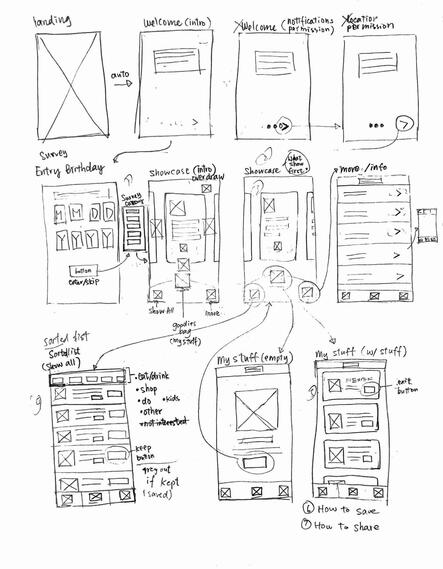 landing
Welcome (intro)
Welcome (notifications
permission)
Location
permission
auto
Survey
Entry Birthday
Showcase (intro)
overdraw
Showcase
more /info
M M D D
Y Y Y Y
button
enter/skip
Show All
more
goodies
bag
(my stuff)
sorted list
(show all)
• eat/drink
• shop
• do
• kids
• other
• not interested
keep
button
grey out
if kept
(saved)
My stuff (empty)
My stuff (w/ stuff)
edit
button
⑥ How to save
⑦ How to share